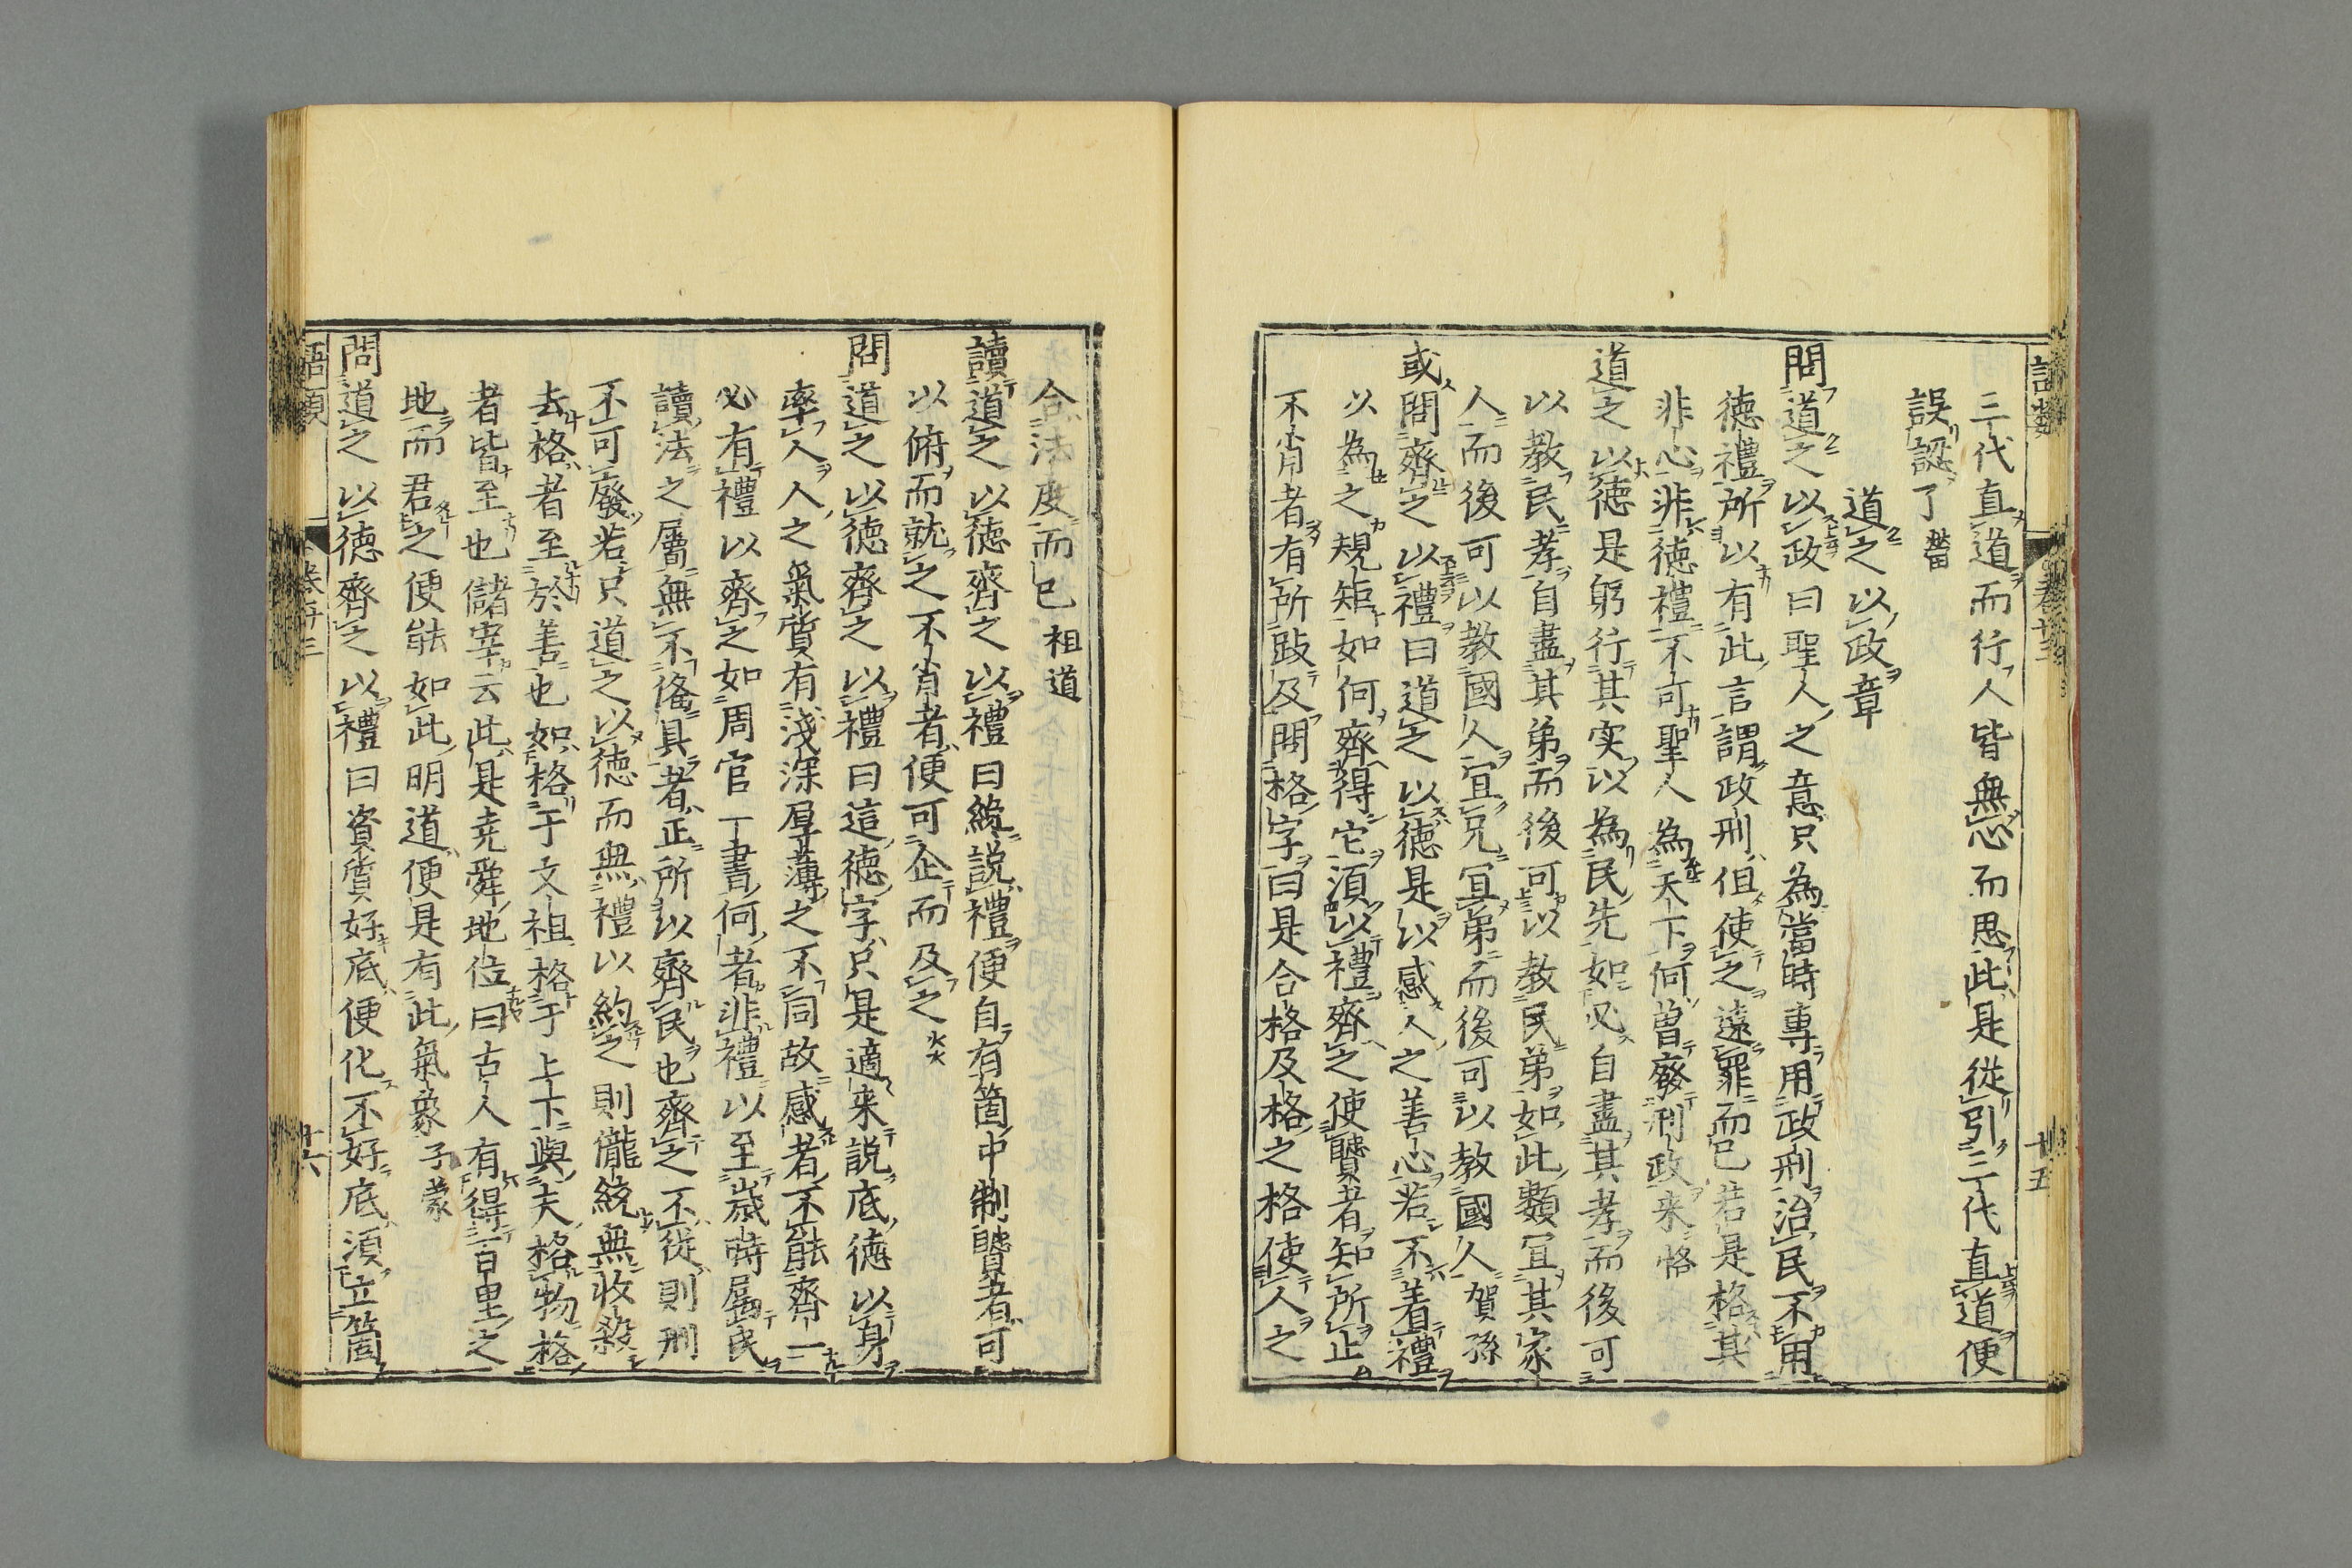 語類
卷廿三
十五
三代直道而行人皆無心而思此是從引三代直道便
誤認了 㽦
道之以政章
問道之以政曰聖人之意只為當時專用政刑治民不用
德禮所以有此言謂政刑但使之遠罪而已若是格其
非心非德禮不可聖人為天下何曽廢刑政来 恪
道之以德是躬行其实以為民先如必自盡其孝而後可
以教民孝自盡其弟而後可以教民弟如此類宜其家
人而後可以教國人宜兄宜弟而後可以教國人 賀孫
或問齊之以禮曰道之以德是以感人之善心若不着禮
以為之規矩如何齊得它須以禮齊之使賢者知所止
不肖者有所跂及問格字曰是合格及格之格使人之
合法度而已 祖道
讀道之以德齊之以禮曰纔說禮便自有箇中制賢者可
以俯而就之不肖者便可企而及之 炎
問道之以德齊之以禮曰這德字只是適来說底德以身
率人人之氣質有淺深厚薄之不同故感者不能齊一
必有禮以齊之如周官一書何者非禮以至歲時屬民
讀法之屬無不備具者正所以齊民也齊之不從則刑
不可廢若只道之以德而無禮以約之則儱統無收殺
去格者至於善也如格于文祖格于上下與夫格物格
者皆至也儲宰云此是堯舜地位曰古人有得百里之
地而君之便能如此明道便是有此氣象 子蒙
問道之以德齊之以禮曰資質好底便化不好底須立箇
語類
卷廿三
十六